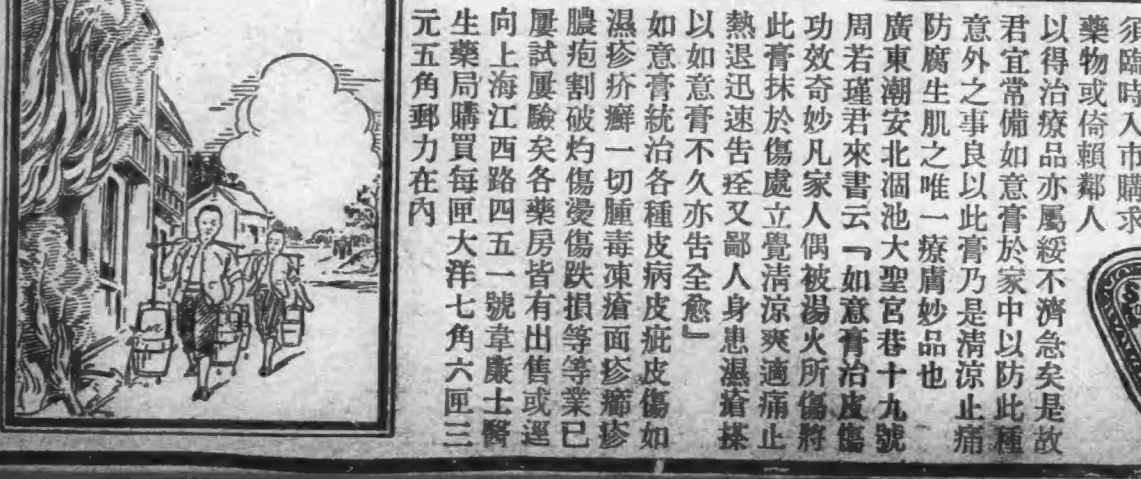 須臨時入市購求
藥物或倚賴鄰人
以得治療品亦屬綏不濟急矣是故
君宜常備如意膏於家中以防此種
意外之事良以此膏乃是清涼止痛
防腐生肌之唯一療膚妙品也
廣東潮安北涸池大聖宮巷十九號
周若瑾君來書云『如意膏治皮傷
功效奇妙凡家人偶被湯火所傷將
此膏抹於傷處立覺清涼爽適痛止
熱退迅速告痊又鄙人身患濕瘡搽
以如意膏不久亦告全愈』
如意膏統治各種皮病皮疵皮傷如
濕疹疥癬一切腫毒凍瘡面疹癤疹
膿疱割破灼傷燙傷跌損等等業已
屢試屢驗矣各藥房皆有出售或逕
向上海江西路四五一號韋廉士醫
生藥局購買每匣大洋七角六匣三
元五角郵力在內